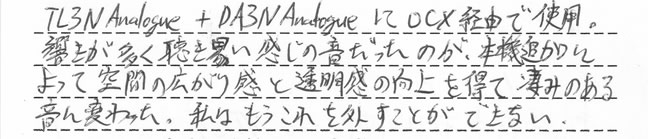 TL3N Analogue + DA3N Analogue に OCX 経由で使用。
響きが多く聴き易い感じの音だったのが、本機追加に
よって空間の広がり感と透明感の向上を得て凄みのある
音に変わった。私はもうこれを外すことができない。